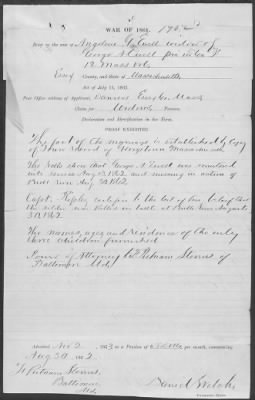 WAR OF 1861.
Brief in the case of Angeline G. Ewell widow of
George A Ewell
12 Mass Vols
Essex County, and State of Massachusetts
Act of July 14, 1862.
Post Office Address of Applicant, Danvers Essex Co. Mass
Claim for Widows Pension.
Declaration and Identification in due Form.
PROOF EXHIBITED
The fact of the marriage is established by copy
of Town Record of Georgetown Massachusetts
The Rolls show that George A Ewell was
into service Aug 1862 and missing in action of
Bull Run Aug 30 1862
Capt. Ripley certifies to the best of his belief that
the soldier was killed in battle at Bulls Run August
30 1862
The names, ages and residence of the only
three children furnished
Power of Attorney to H Putnam Stevens of
Baltimore Md.
Admitted Nov 2 1863 to a Pension of 8 Dollars per month, commencing
Aug 30 1862
H Putnam Stevens,
Baltimore,
Md.